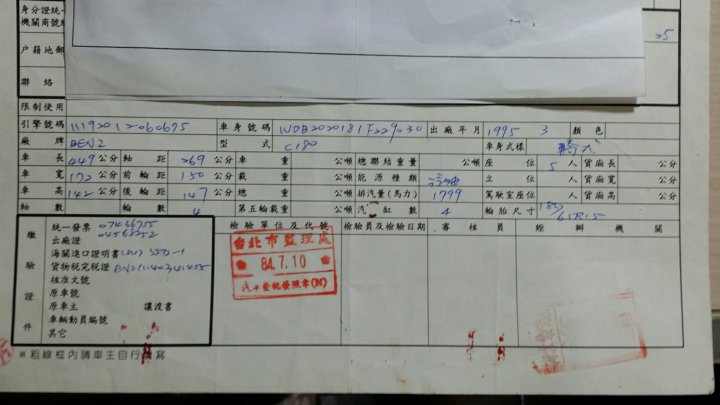 身分證統一
機關商號統
25
户籍地郵
聯 絡
限制使用
引擎號碼 11192012060675 車身號碼 WDB2020181F229030 出廠年月 1995 3 顏色
廠牌 BENZ 型式 C180 車身式樣 轎式
車長 449 公分 軸距 269 公分 車重 公噸 總聯結重量 公噸 座位 5 人 貨廂長 公分
車寬 172 公分 前輪距 150 公分 載重 公噸 能源種類 汽油 立位 人 貨廂寬 公分
車高 142 公分 後輪距 147 公分 總重 公噸 排汽量(馬力) 1799 駕駛室座位 人 貨廂高 公分
軸數 輪數 4 第五輪載重 公噸 汽缸數 4 輪胎尺寸 185/65R15
繳驗證件
統一發票
出廠證
海關進口證明書
貨物稅完稅證
核准文號
原車號
原車主 讓渡書
車輛動員編號
其它
檢驗單位及代號 檢驗員及檢驗日期 審核員 經辦機關
台北市監理處
84.7.10
※粗線框內請車主自行填寫